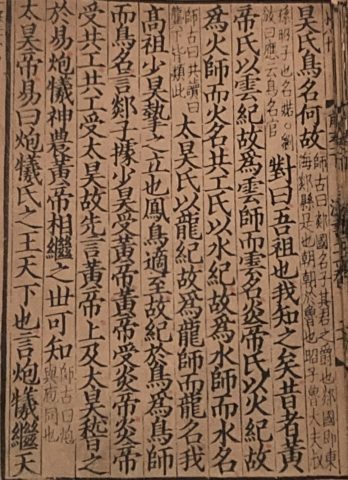 昊氏鳥名何故師古曰郯國名子其君之爵也郯國即東海郯縣是也朝朝於魯也昭子魯大夫叔
孫昭子也名婼〇劉攽曰應云鳥名官對曰吾祖也我知之矣昔者黃
帝氏以雲紀故爲雲師而雲名炎帝氏以火紀故
爲火師而火名共工氏以水紀故爲水師而水名
師古曰共讀曰龔下皆類此太昊氏以龍紀故爲龍師而龍名我
高祖少昊摯之立也鳳鳥適至故紀於鳥爲鳥師
而鳥名言郯子據少昊受黃帝黃帝受炎帝炎帝
受共工共工受太昊故先言黃帝上及太昊稽之
於易炮犧神農黃帝相繼之世可知師古曰炮與庖同也
太昊帝易曰炮犧氏之王天下也言炮犧繼天